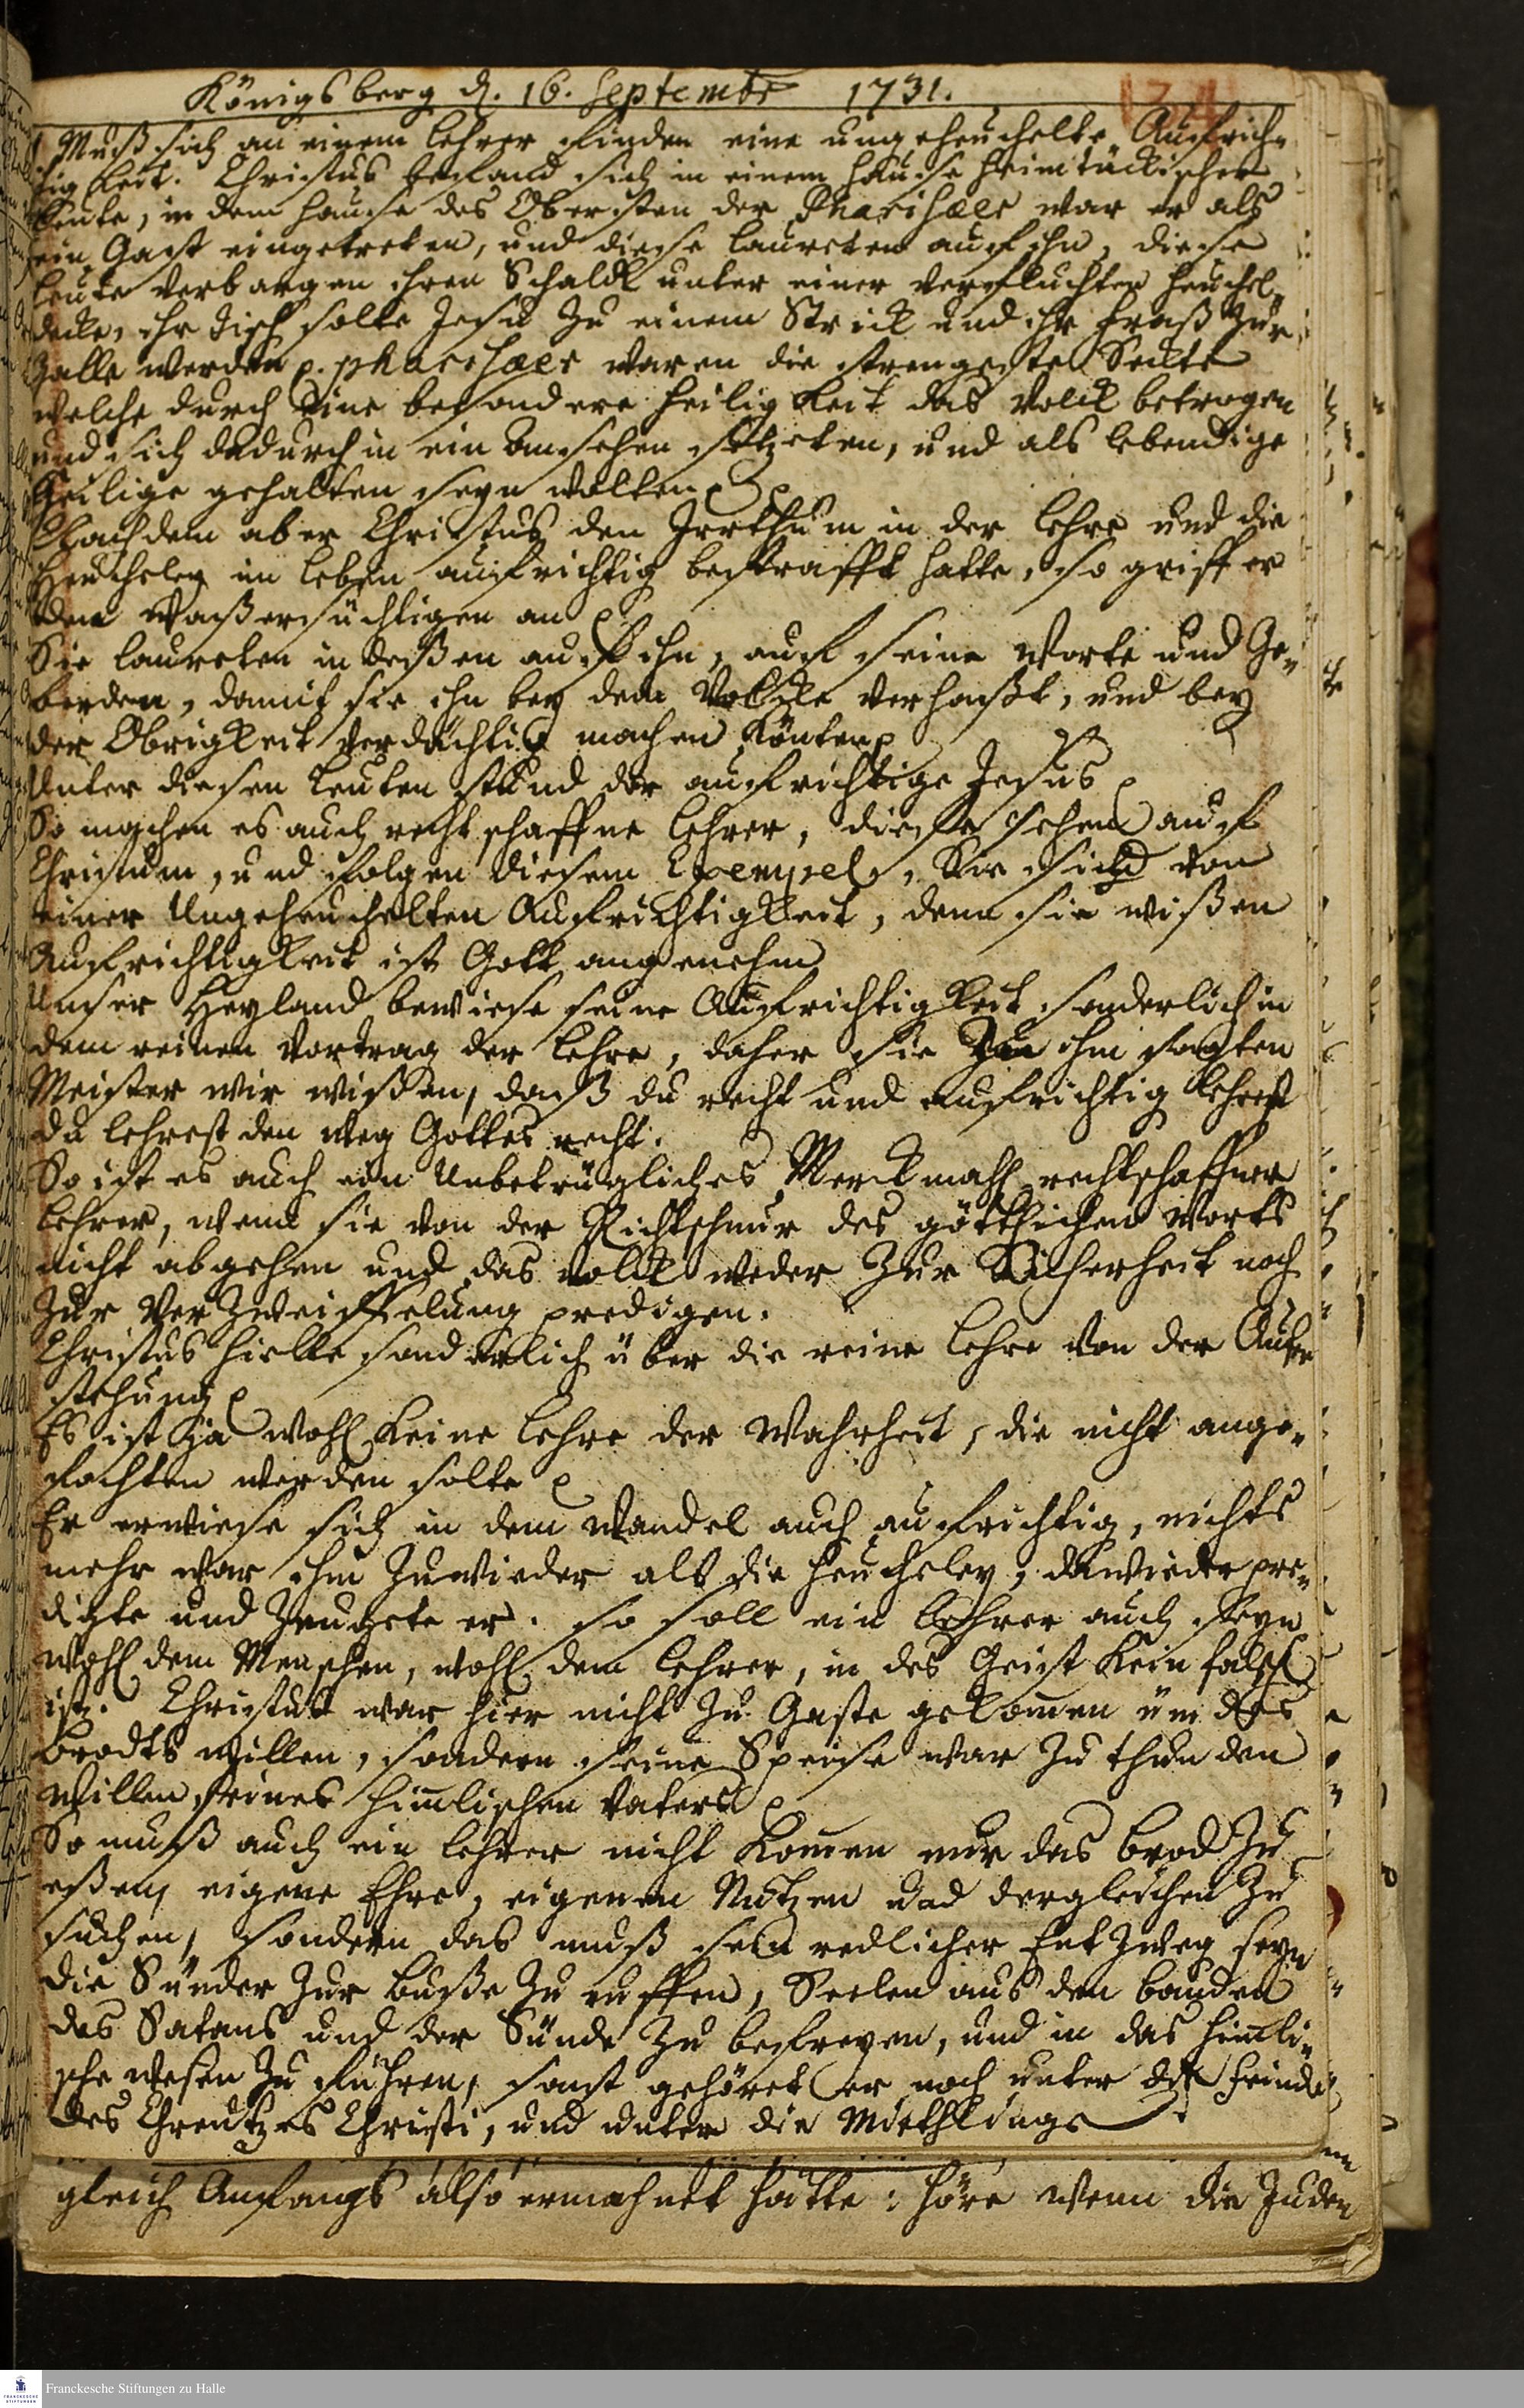 Königsberg d. 16. Septembr 1731.
Muß sich an einem Lehrer finden eine ungeheuchelte Aufrich-
tigkeit. Christus befand sich in einem Hause heimtückischer
Leute, in dem Hause des Obersten der Pharisæer war er als
ein Gast eingetreten, und diese laureten auf ihn, diese
Leute verbargen ihren Schalck unter einer verfluchten Heuchel-
decke, ihr Tisch solte Jesu zu einem Strick und ihr Fraß zur
Falle werden p. pharisæer waren die strengeste Seckte
welche durch eine besondere Heiligkeit das Volck betrogen
und sich dadurch in ein Ansehen setzeten, und als lebendige
Heilige gehalten seyn wolten p
Nachdem aber Christus den Irrthum in der Lehre und die
Heucheley im Leben aufrichtig bestrafft hatte, so griff er
den Waßersüchtigen an p
Sie laureten indeßen auf ihn, auf seine Worte und Ge-
berden, damit sie ihn bey dem Volcke verhaßt, und bey
der Obrigkeit verdächtig machen könten p
Unter diesen Leuten stund der aufrichtige Jesus p
So machen es auch rechtschaffne Lehrer, diese sehen auf
Christum, und folgen diesem Exempel, Sie sind von
einer Ungeheuchelten Aufrichtigkeit, denn sie wißen
Aufrichtigkeit ist Gott angenehm
Unser Heyland bewiese seine Aufrichtigkeit sonderlich in
dem reinen Vortrag der Lehre, daher sie zu ihm sagten
Meister wir wißen, daß du recht und aufrichtig lehrest
du lehrest den Weg Gottes recht.
So ist es auch ein Unbetrügliches Merckmahl rechtschaffner
Lehrer, wenn sie von der Richtschnur des göttlichen Worts
nicht abgehen und das Volck weder zur Sicherheit noch
zur Verzweiffelung predigen.
Christus hielte sonderlich über die reine Lehre von der Aufer
stehung p
Es ist ja wohl keine Lehre der Wahrheit, die nicht ange-
fochten werden solte p
Er erwiese sich in dem Wandel auch aufrichtig, nichts
mehr war ihm zuwieder als die Heucheley, dawieder pre-
digte und zeugete er. so soll ein Lehrer auch seyn
wohl dem Menschen, wohl dem Lehrer, in des Geist kein falsch
ist. Christus war hier nicht zu Gaste gekommen üm des
Brodts willen, sondern seine Speise war zu thun den
Willen seines himmlischen Vaters p
So muß auch ein Lehrer nicht kommen nur das Brod zu
eßen, eigene Ehre, eigenen Nutzen und dergleichen zu
suchen, sondern das muß sein redlicher Entzweg seyn
die Sünder zur Buße zu ruffen, Seelen aus den Banden
des Satans und der Sünde zu befreyen, und in das himmli-
sche Wesen zu führen, sonst gehöret er noch unter die Feinde
des Chreutzes Christi, und unter die Miethlinge
gleich Anfangs also ermahnet hätte: höre wenn die Juden
Franckesche Stiftungen zu Halle